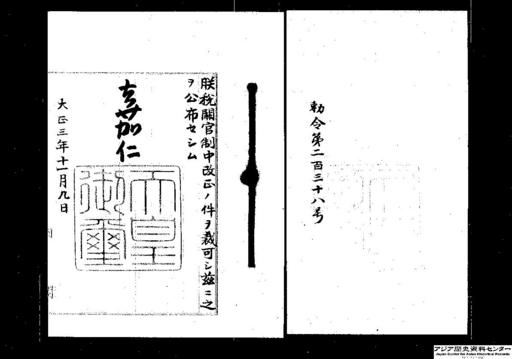 勅令第二百三十八号
朕税關官制中改正ノ件ヲ裁可シ茲ニ之
ヲ公布セシム
嘉仁
天皇
御璽
大正三年十一月九日
アジア歴史資料センター
Japan Center for Asian Historical Records